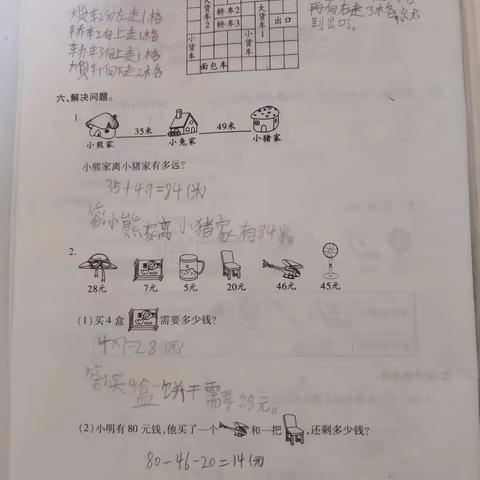 大货车2向左走1格
轿车2向上走1格
轿车3向上走1格
大货车1向下走2格
大货车2
轿车2
轿车3
大货车1
出口
小货车
小货车
面包车
再向右走3格,
到出口。
六、解决问题。
1.
35米
49米
小熊家
小兔家
小猪家
小熊家离小猪家有多远?
35+49=84(米)
答:小熊家离小猪家有84米。
2.
28元
7元
5元
20元
46元
45元
(1)买4盒
需要多少钱?
4×7=28(元)
答:买4盒饼干需要28元。
(2)小明有80元钱,他买了一个
和一把
,还剩多少钱?
80-46-20=14(元